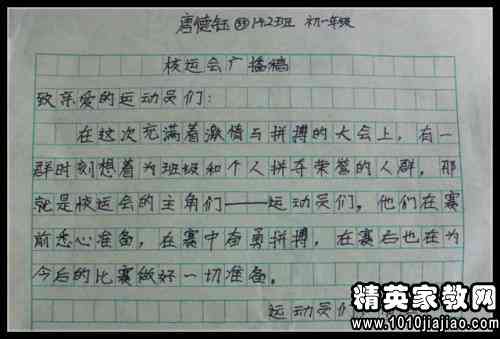 唐健钰 1425班 初一年级
校运会广播稿
致亲爱的运动员们：
在这次充满着激情与拼搏的大会上，有一
群时刻想着为班级和个人拼夺荣誉的人群，那
就是校运会的主角们——运动员们，他们在赛
前悉心准备，在赛中奋勇拼搏，在赛后也在为
今后的比赛做好一切准备。
运动员们
精英家教网
www.1010jiajiao.com